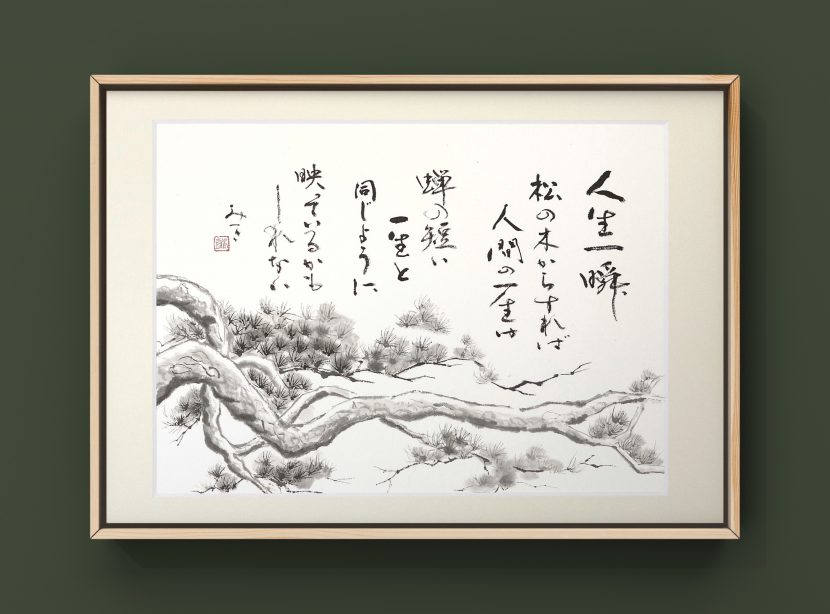 人生一瞬
松の木からすれば
人間の一生は
蝉の短い
一生と
同じように
映っているかも
しれない